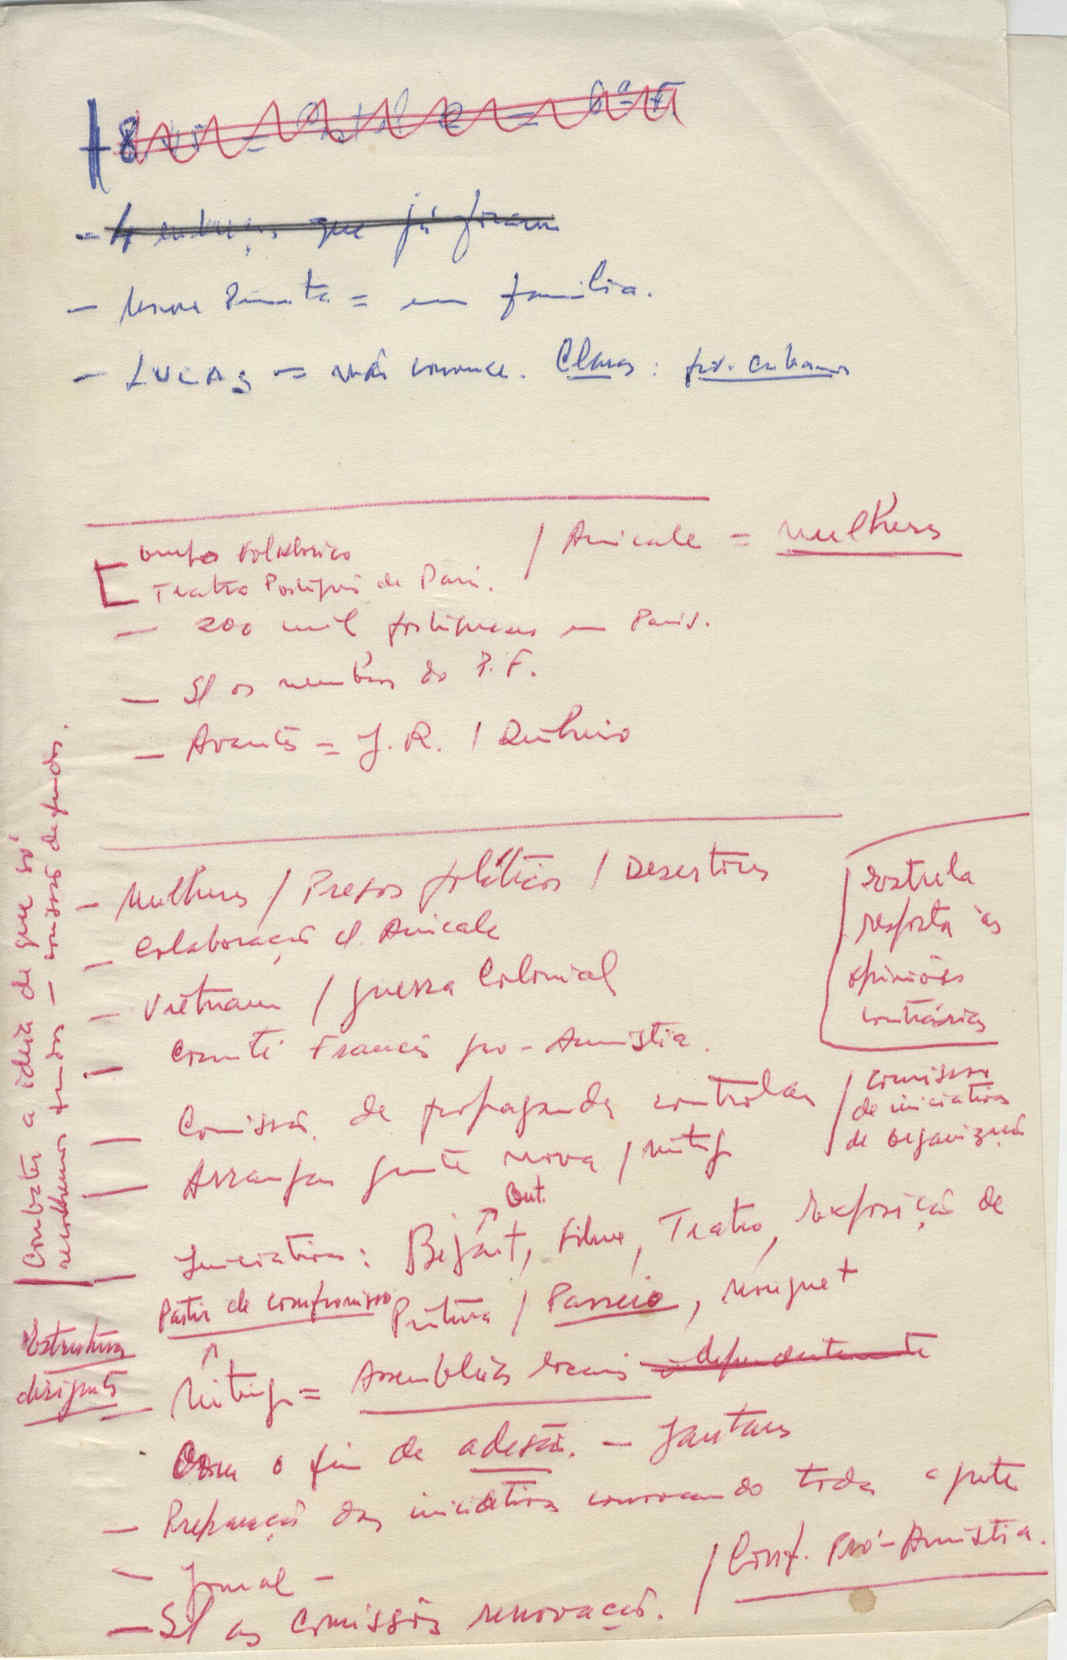 - 4 que já foram
- Pimenta = em família.
- LUCAS = não Claros: cubanos
Grupo Folclórico
Teatro Português de Paris.
/ Amicale = mulheres
- 200 mil portugueses em Paris.
- S/ os membros do P.F.
- Avante = J.R. /
- Mulheres / Presos políticos / Desertores
- Colaboração c/. Amicale
- Vietnam / guerra Colonial
- Comité Francês pro-Amnistia.
resposta às
opiniões
contrárias
- Comissão de propaganda controlar
/ Comissão
de iniciativas
de organização
- Arranjar gente nova / miting
- Iniciativas: Béjart, Filme, Teatro, Exposição de
Out.
Pintura / Passeio, +
Partir de compromisso
- Miting = Assembleias locais
Com o fim de adesão. - Jantares
- Preparação das iniciativas convocando toda a gente
- Jornal -
- S/ as comissões renovação.
/ Conf. Pró-Amnistia.
Combater a ideia de que só
recolhemos fundos - comissão de fundos.
Estrutura
dirigente